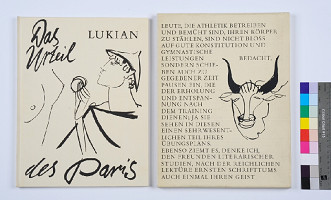 Das
Urteil
LUKIAN
des Paris
LEUTE, DIE ATHLETIK BETREIBEN
UND BEMÜHT SIND, IHREN KÖRPER
ZU STÄHLEN, SIND NICHT BLOSS
AUF GUTE KONSTITUTION UND
GYMNASTISCHE
LEISTUNGEN BEDACHT,
SONDERN SCHIE-
BEN AUCH ZU
GEGEBENER ZEIT
PAUSEN EIN, DIE
DER ERHOLUNG
UND ENTSPAN-
NUNG NACH
DEM TRAINING
DIENEN; JA SIE
SEHEN IN DIESEN
EINEN SEHR WESENT-
LICHEN TEIL IHRES
ÜBUNGSPLANS.
EBENSO ZIEMT ES, DENKE ICH,
DEN FREUNDEN LITERARISCHER
STUDIEN, NACH DER REICHLICHEN
LEKTÜRE ERNSTEN SCHRIFTTUMS
AUCH EINMAL IHREN GEIST